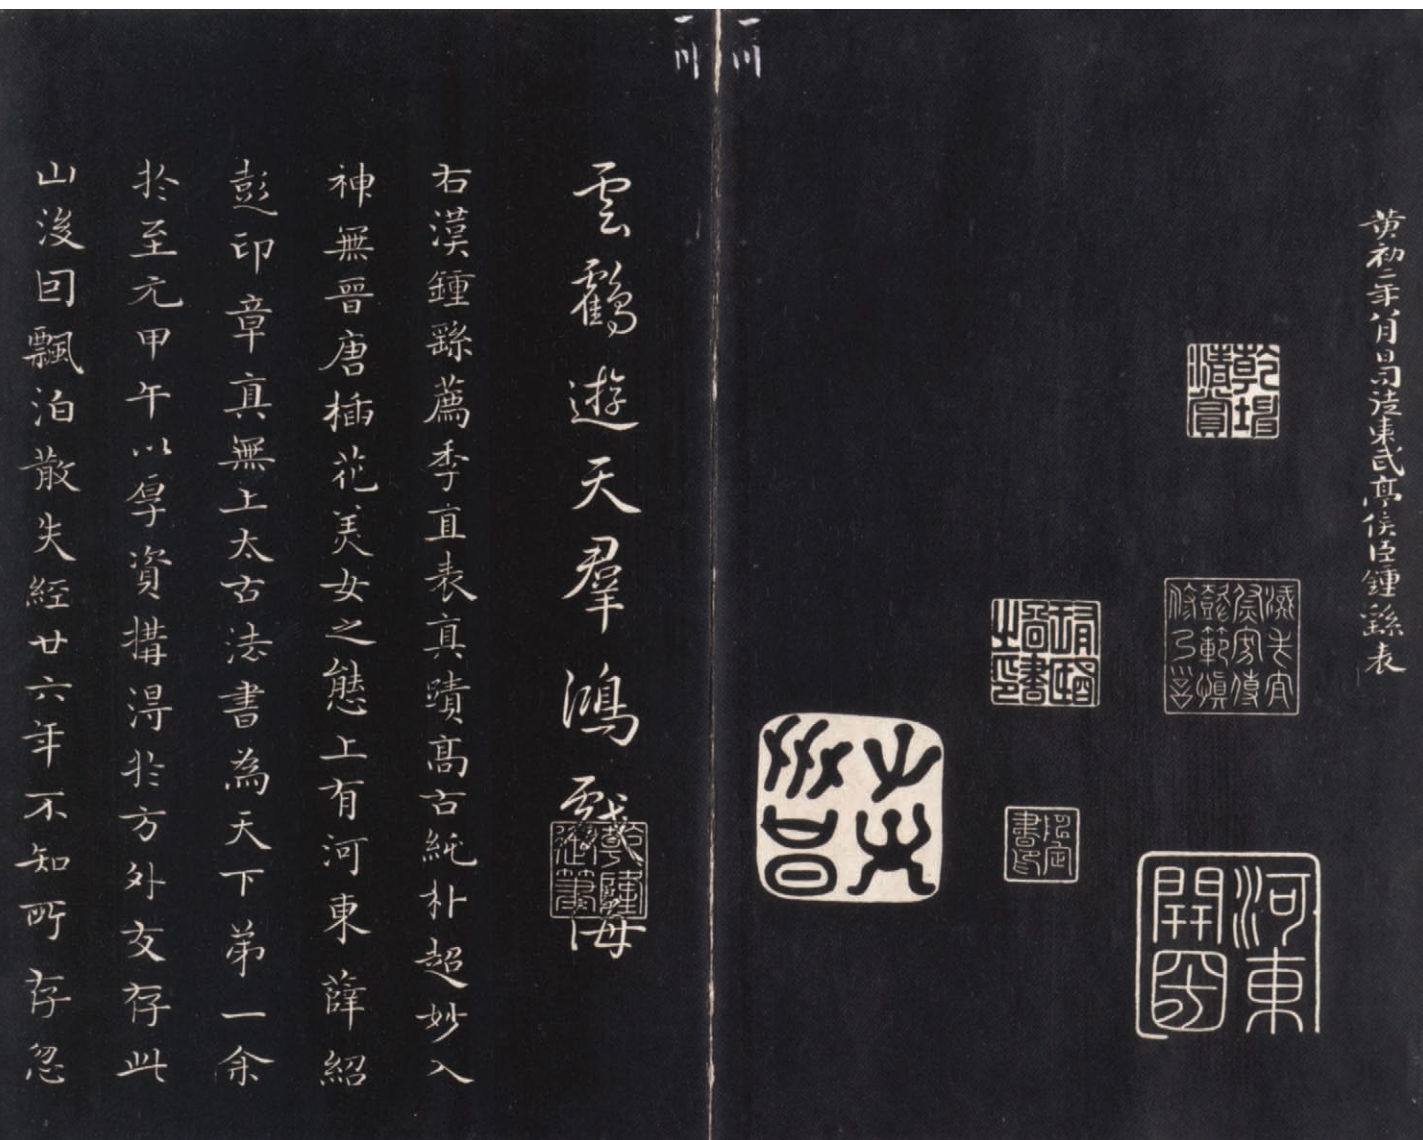 黃初二年八月日司徒東武亭侯臣鍾繇表
河東
雲鶴遊天羣鴻戲海
乾隆宸翰
右漢鍾繇薦季直表真蹟高古純朴超妙入
神無晉唐插花美女之態上有河東薛紹
彭印章真無上太古法書為天下第一余
於至元甲午以厚資購得於方外友存此
山後因飄泊散失經廿六年不知所存忽